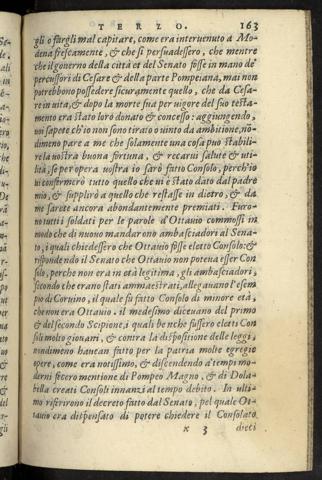 TERZO. 163
gli o fargli mal capitare, come era interuenuto a Mo-
dena frescamente, & che si persuadessero, che mentre
che il gouerno della città et del Senato fosse in mano de'
percussori di Cesare & della parte Pompeiana, mai non
potrebbono possedere sicuramente quello, che da Cesa-
re in uita, & dopo la morte sua per uigore del suo testa-
mento era stato loro donato & concesso: aggiungendo,
uoi sapete ch'io non sono tirato o uinto da ambitione, no-
dimeno pare a me che solamente una cosa può stabili-
re la uostra buona fortuna, & recarui salute & uti-
lità, se per opera uostra io sarò fatto Consolo, perch'io
ui confirmerò tutto quello che ui è stato dato dal padre
mio, & supplirò a quello che restasse in dietro, & da
me sarete ancora abondantemente premiati. Furo-
no tutti i soldati per le parole d'Ottauio commossi in
modo che di nuouo mandarono ambasciadori al Sena-
to, i quali chiedessero che Ottauio fosse eletto Consolo: &
rispondendo il Senato che Ottauio non poteua esser Con
solo, perche non era in età legitima, gli ambasciadori,
secondo che erano stati ammaestrati, allegauano l'esem
pio di Coruino, il quale fu fatto Consolo di minore età,
che non era Ottauio. il medesimo diceuano del primo
& del secondo Scipione, i quali benche fussero eletti Con
soli molto giouani, & contra la dispositione delle leggi,
nondimeno haueano fatto per la patria molte egregie
opere, come era notissimo, & discendendo a' tempi mo-
derni fecero mentione di Pompeo Magno, & di Dola-
bella creati Consoli innanzi al tempo debito. In ulti-
mo riferirono il decreto fatto dal Senato, pel quale Ot-
tauio era dispensato di potere chiedere il Consolato
x 3 dieci